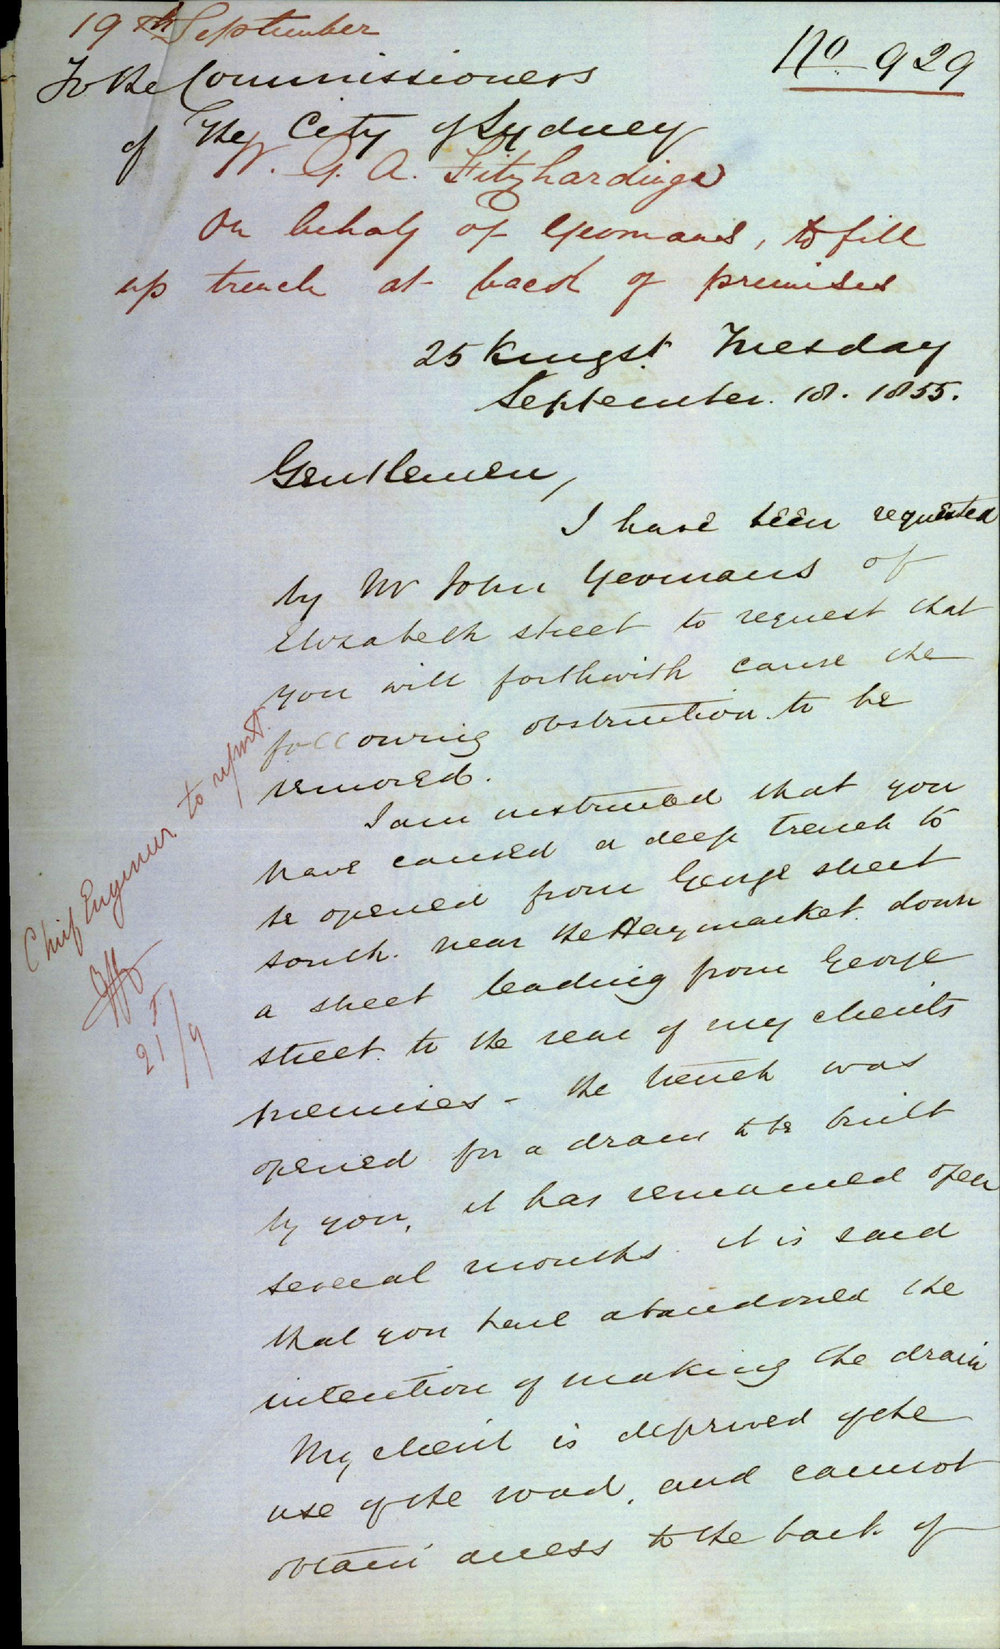 19th September
No 929
To the Commissioners
of The City of Sydney
W. G. A. Fitzhardinge
on behalf of Yeomans, to fill
up trench at back of premises
25 King St. Tuesday
September. 18. 1855.
Gentlemen,
I have been requested
by Mr John Yeomans of
Elizabeth street to request that
you will forthwith cause the
following obstruction to be
removed.
I am instructed that you
have caused a deep trench to
be opened from George street
south. near the Haymarket. down
a street leading from George
street. to the rear of my clients
premises - the trench was
opened for a drain to be built
by you, it has remained open
several months. it is said
that you have abandoned the
intention of making the drain
My client is deprived of the
use of the road, and cannot
obtain access to the back of
Chief Engineer to report.
21/9